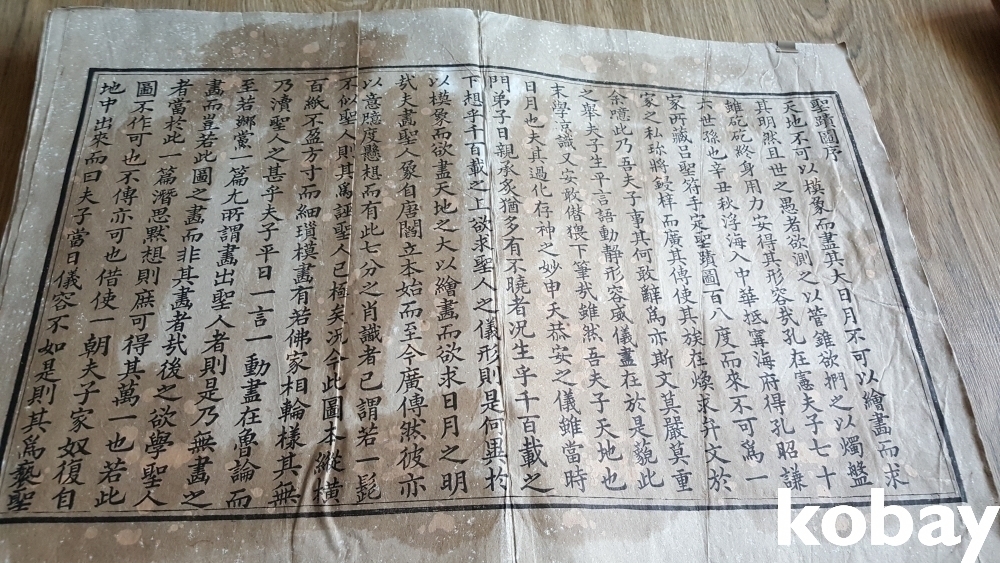 聖蹟圖序
天地不可以模象而盡其大日月不可以繪畫而求
其明然且世之愚者欲測之以管雖欲捫之以燭盤
雖矻矻終身用力安得其形容我孔在憲夫子七十
六世孫也辛丑秋浮海入中華抵寧海府得孔昭謙
家所藏呂聖符手定聖蹟圖百八度而來不可爲一
家之私珍將鋟梓而廣其傳使其族在煥求弁文於
余噫此乃吾夫子事其何敢辭焉亦斯文莫嚴莫重
之舉夫子生平言語動靜形容威儀盡在於是藐此
末學謭識又安敢僣猥下筆哉雖然吾夫子天地也
日月也夫其過化存神之妙申夭恭安之儀雖當時
門弟子日親承炙猶多有不曉者况生乎千百載之
下想乎千百載之上欲求聖人之儀形則是何異於
以模象而欲盡天地之大以繪畫而欲求日月之明
哉夫畫聖人象自唐閻立本始而至今廣傳然彼亦
以意臆度懸想而有此七分之肖識者已謂若一髭
不似聖人則其爲誣聖人已極矣况今此圖本縱橫
百紙不盈方寸而細瑣模畫有若佛家相輪樣其無
乃瀆聖人之甚乎夫子平日一言一動盡在魯論而
至若鄕黨一篇尤所謂畫出聖人者則是乃無畫之
畫而豈若此圖之畫而非其畫者哉後之欲學聖人
者當於此一篇潛思默想則庶可得其萬一也若此
圖不作可也不傳亦可也借使一朝夫子家奴復自
地中出來而曰夫子當日儀容不如是則其爲褻聖
kobay